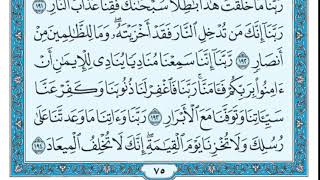 رَبَّنَا مَا خَلَقْتَ هَٰذَا بَٰطِلًا سُبْحَٰنَكَ فَقِنَا عَذَابَ ٱلنَّارِ ١٩١
رَبَّنَآ إِنَّكَ مَن تُدْخِلِ ٱلنَّارَ فَقَدْ أَخْزَيْتَهُۥ ۖ وَمَا لِلظَّٰلِمِينَ مِنْ
أَنصَارٍ ١٩٢ رَّبَّنَآ إِنَّنَا سَمِعْنَا مُنَادِيًا يُنَادِى لِلْإِيمَٰنِ أَنْ
ءَامِنُوا۟ بِرَبِّكُمْ فَـَٔامَنَّا ۚ رَبَّنَا فَٱغْفِرْ لَنَا ذُنُوبَنَا وَكَفِّرْ عَنَّا
سَيِّـَٔاتِنَا وَتَوَفَّنَا مَعَ ٱلْأَبْرَارِ ١٩٣ رَبَّنَا وَءَاتِنَا مَا وَعَدتَّنَا عَلَىٰ
رُسُلِكَ وَلَا تُخْزِنَا يَوْمَ ٱلْقِيَٰمَةِ ۗ إِنَّكَ لَا تُخْلِفُ ٱلْمِيعَادَ ١٩٤
٧٥